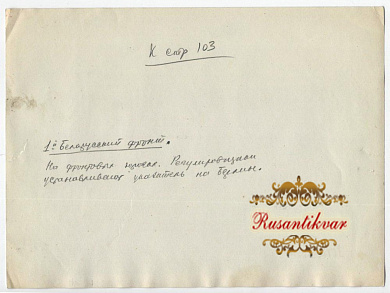 К стр 103
1й Белорусский фронт.
На фронтовых дорогах. Регулировщики
устанавливают указатель на Берлин.
Rusantikvar